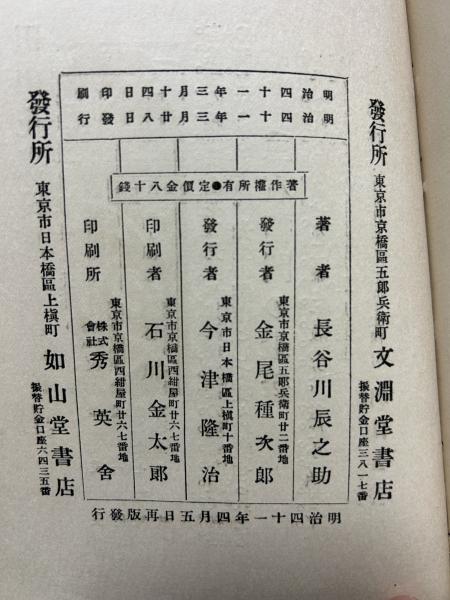 發行所 東京市京橋區五郎兵衛町 文淵堂書店
振替貯金口座三八一七番
明治四十一年三月十四日印刷
明治四十一年三月廿八日發行
著作權所有●定價金八十錢
著者 長谷川辰之助
東京市京橋區五郎兵衛町廿二番地
發行者 金尾種次郎
東京市日本橋區上槇町十番地
發行者 今津隆治
東京市京橋區西紺屋町廿六七番地
印刷者 石川金太郎
東京市京橋區西紺屋町廿六七番地
印刷所 株式會社 秀英舍
明治四十一年四月五日再版發行
發行所 東京市日本橋區上槇町 如山堂書店
振替貯金口座六四三五番